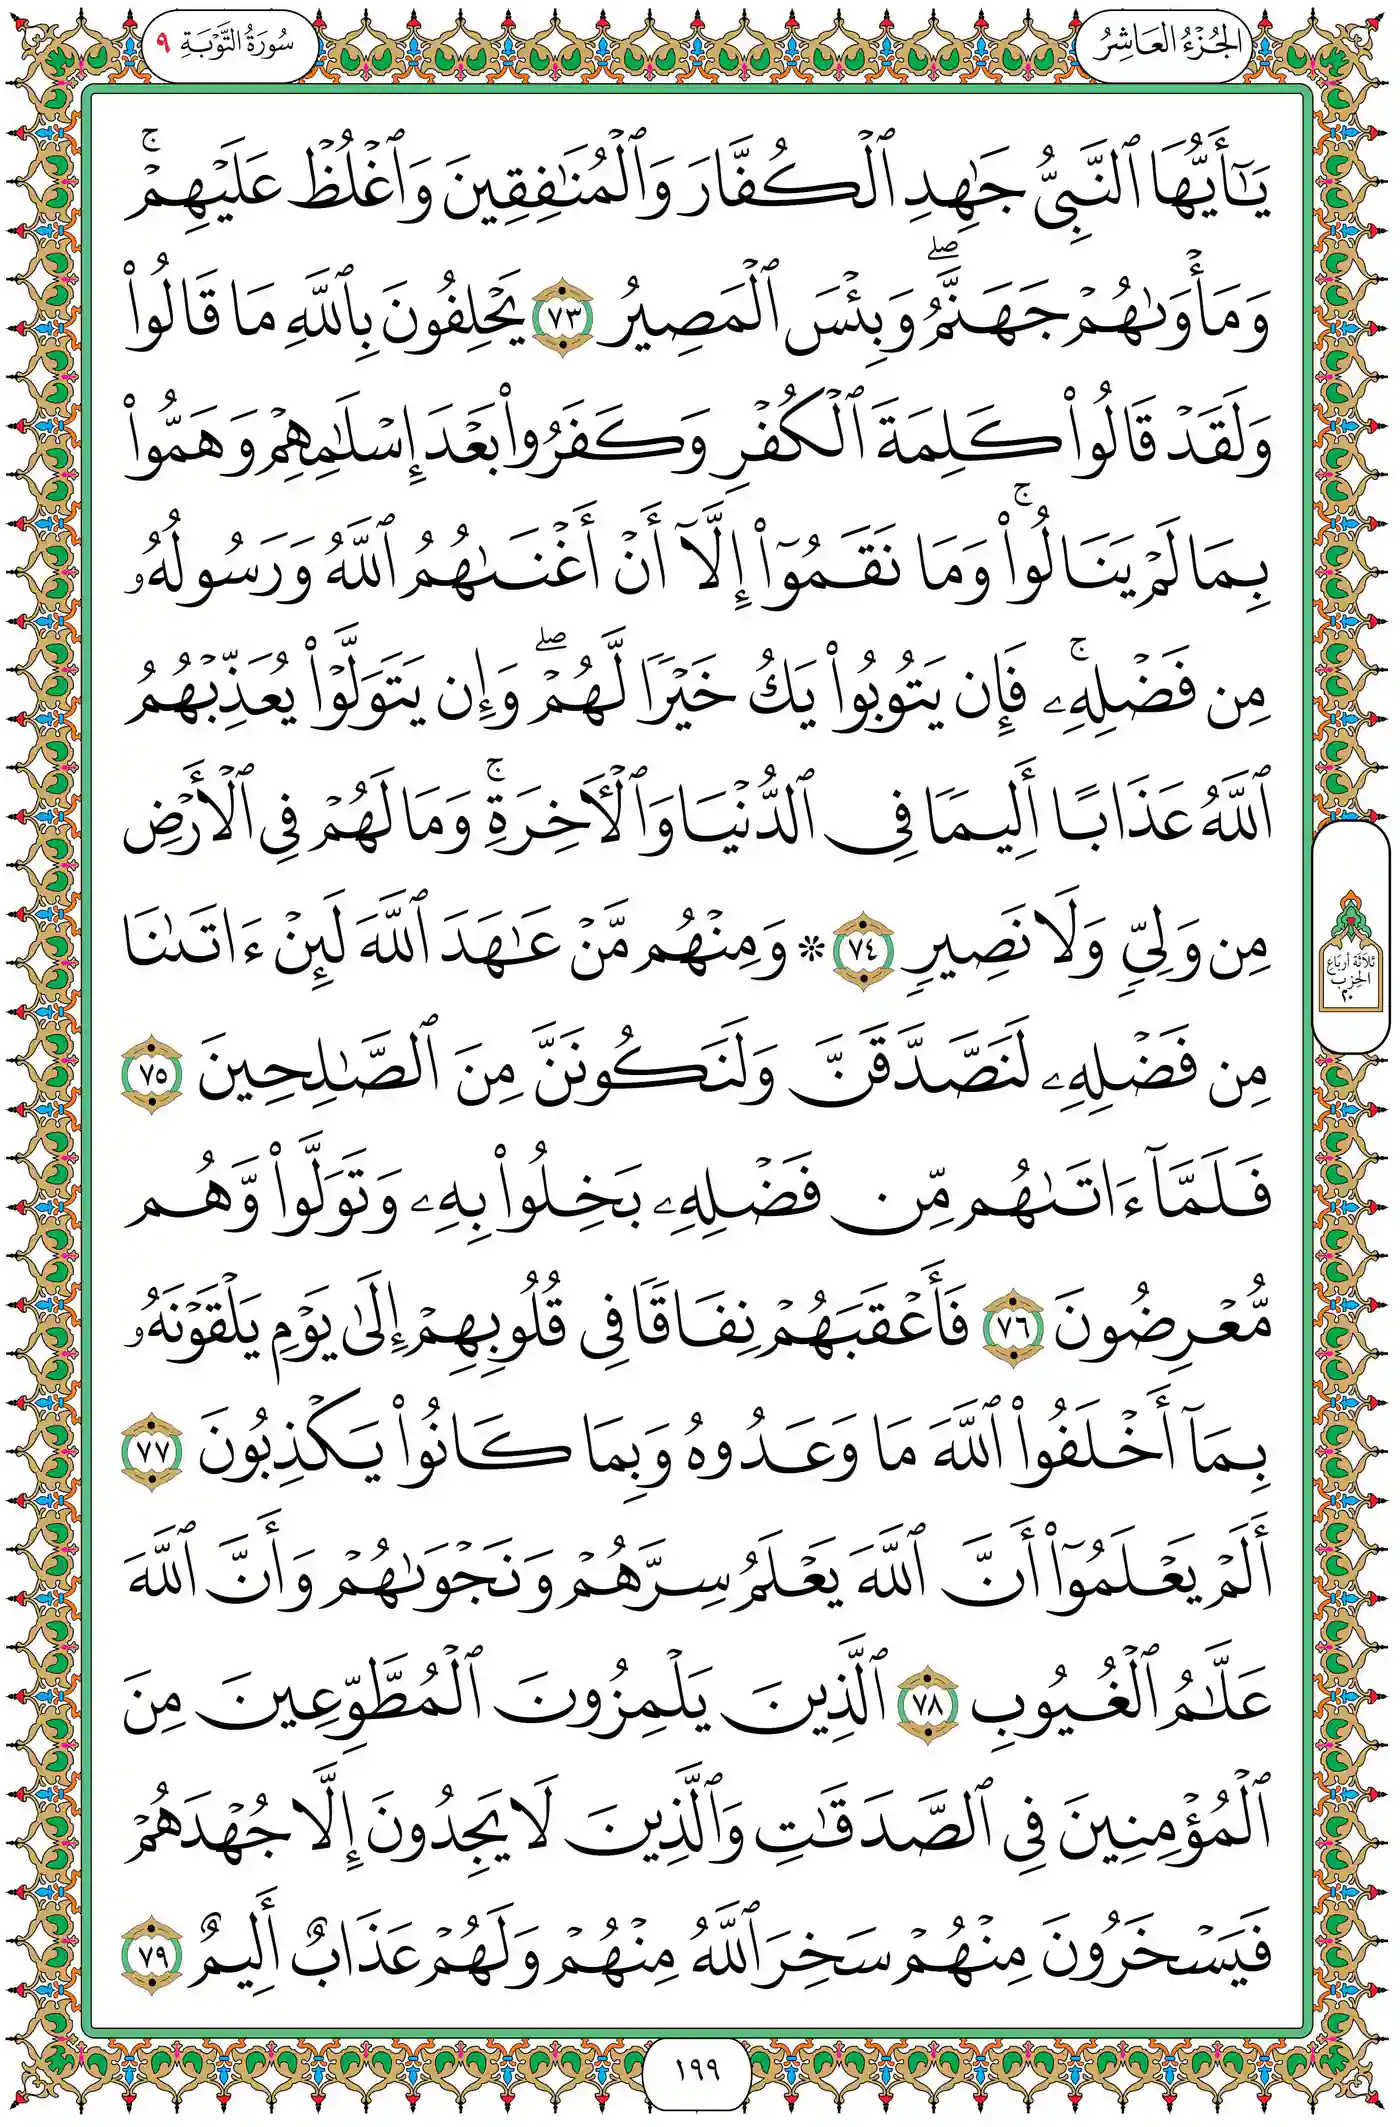 الجُزْءُ العَاشِرُ
سُورَةُ التَّوْبَةِ ٩
يَـٰٓأَيُّهَا ٱلنَّبِيُّ جَـٰهِدِ ٱلۡكُفَّارَ وَٱلۡمُنَـٰفِقِينَ وَٱغۡلُظۡ عَلَيۡهِمۡۚ
وَمَأۡوَىٰهُمۡ جَهَنَّمُۖ وَبِئۡسَ ٱلۡمَصِيرُ ٧٣ يَحۡلِفُونَ بِٱللَّهِ مَا قَالُواْ
وَلَقَدۡ قَالُواْ كَلِمَةَ ٱلۡكُفۡرِ وَكَفَرُواْ بَعۡدَ إِسۡلَـٰمِهِمۡ وَهَمُّواْ
بِمَا لَمۡ يَنَالُواْۚ وَمَا نَقَمُوٓاْ إِلَّآ أَنۡ أَغۡنَىٰهُمُ ٱللَّهُ وَرَسُولُهُۥ
مِن فَضۡلِهِۦۚ فَإِن يَتُوبُواْ يَكُ خَيۡرٗا لَّهُمۡۖ وَإِن يَتَوَلَّوۡاْ يُعَذِّبۡهُمُ
ٱللَّهُ عَذَابًا أَلِيمٗا فِي ٱلدُّنۡيَا وَٱلۡأٓخِرَةِۚ وَمَا لَهُمۡ فِي ٱلۡأَرۡضِ
مِن وَلِيّٖ وَلَا نَصِيرٖ ٧٤ ۞ وَمِنۡهُم مَّنۡ عَـٰهَدَ ٱللَّهَ لَئِنۡ ءَاتَىٰنَا
مِن فَضۡلِهِۦ لَنَصَّدَّقَنَّ وَلَنَكُونَنَّ مِنَ ٱلصَّـٰلِحِينَ ٧٥
فَلَمَّآ ءَاتَىٰهُم مِّن فَضۡلِهِۦ بَخِلُواْ بِهِۦ وَتَوَلَّواْ وَّهُم
مُّعۡرِضُونَ ٧٦ فَأَعۡقَبَهُمۡ نِفَاقٗا فِي قُلُوبِهِمۡ إِلَىٰ يَوۡمِ يَلۡقَوۡنَهُۥ
بِمَآ أَخۡلَفُواْ ٱللَّهَ مَا وَعَدُوهُ وَبِمَا كَانُواْ يَكۡذِبُونَ ٧٧
أَلَمۡ يَعۡلَمُوٓاْ أَنَّ ٱللَّهَ يَعۡلَمُ سِرَّهُمۡ وَنَجۡوَىٰهُمۡ وَأَنَّ ٱللَّهَ
عَلَّـٰمُ ٱلۡغُيُوبِ ٧٨ ٱلَّذِينَ يَلۡمِزُونَ ٱلۡمُطَّوِّعِينَ مِنَ
ٱلۡمُؤۡمِنِينَ فِي ٱلصَّدَقَـٰتِ وَٱلَّذِينَ لَا يَجِدُونَ إِلَّا جُهۡدَهُمۡ
فَيَسۡخَرُونَ مِنۡهُمۡ سَخِرَ ٱللَّهُ مِنۡهُمۡ وَلَهُمۡ عَذَابٌ أَلِيمٌ ٧٩
ثلاثة أرباع
الحزب
٢٠
١٩٩